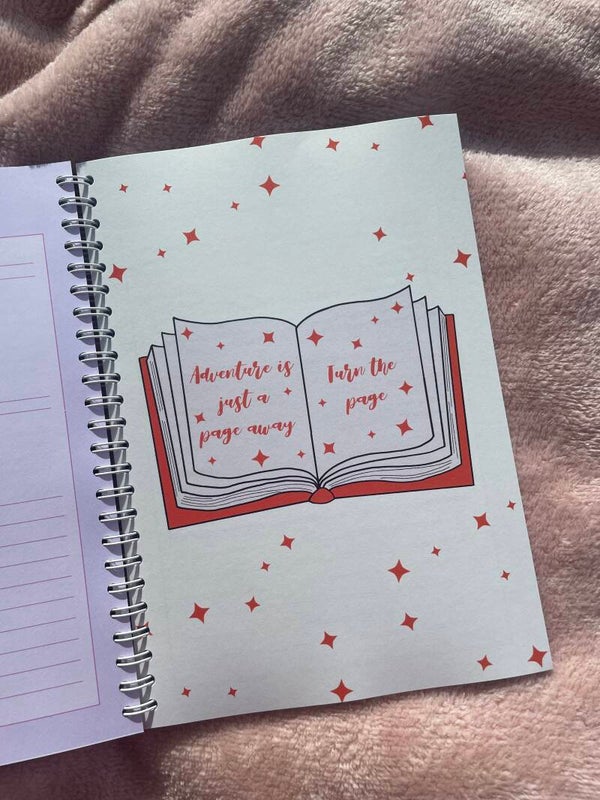 Adventure is
just a
page away
Turn the
page